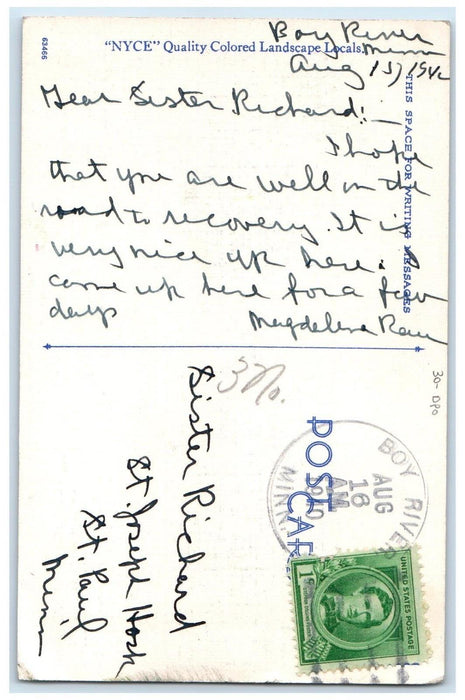 63466
"NYCE" Quality Colored Landscape Locals.
Boy River
Minn
Aug 15, 1940
Dear Sister Richard: —
I hope
that you are well on the
road to recovery. It is
very nice up here. I
came up here for a few
days
Magdelene Rau
THIS SPACE FOR WRITING MESSAGES
30- DPO
370.
POST CARD
BOY RIVER
AUG
16
AM
1940
MINN.
1¢
UNITED STATES POSTAGE
Sister Richard
St. Joseph Hosp
St. Paul
Minn